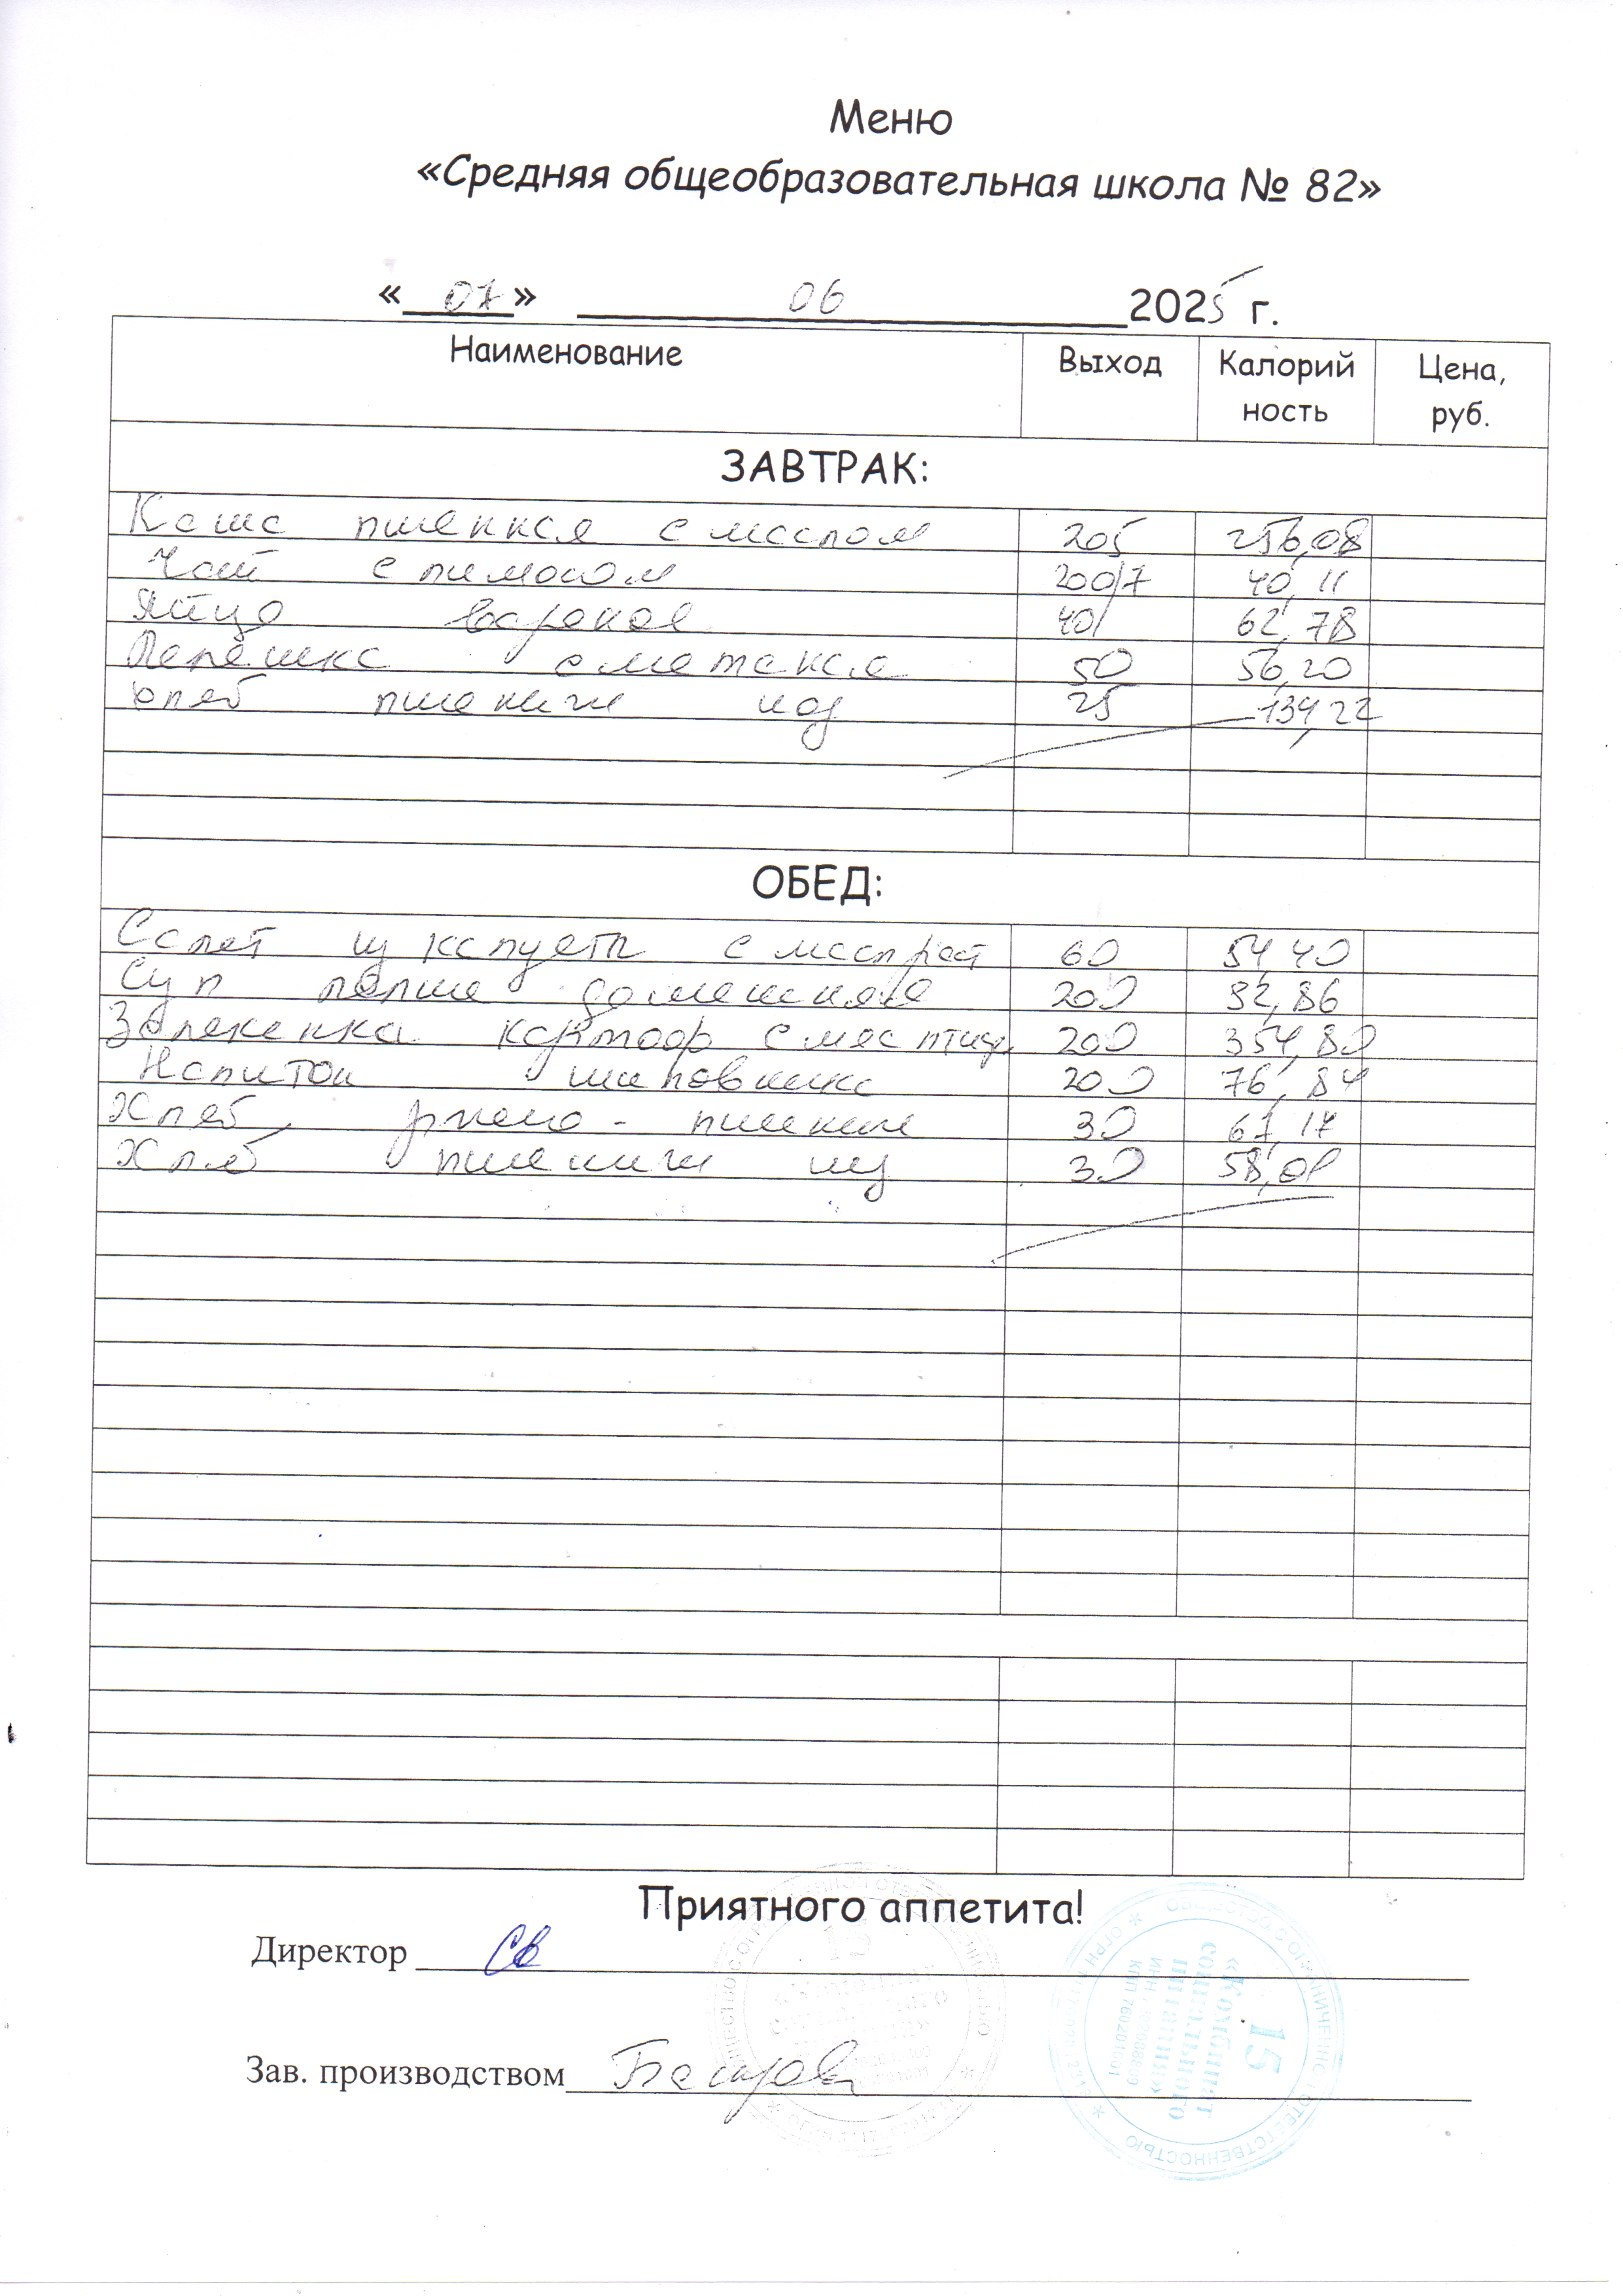 Меню
«Средняя общеобразовательная школа № 82»
« 07 » 06 2025 г.
Наименование Выход Калорий Цена,
ность руб.
ЗАВТРАК:
Каша пшенная с маслом 205 256,08
Чай с лимоном 200/7 40,11
Яйцо вареное 40 62,78
Лепешка сметаная 50 56,20
Хлеб пшенич йод 25 134,22
ОБЕД:
Салат из капусты с масл раст 60 54,40
Суп лапша домашняя 200 92,86
Запеканка картоф с мяс птицы 200 354,80
Напиток шиповника 200 76,84
Хлеб ржано - пшенич 30 61,17
Хлеб пшенич 30 58,01
Приятного аппетита!
Директор
Зав. производством
ОБЩЕСТВО С ОГРАНИЧЕННОЙ ОТВЕТСТВЕННОСТЬЮ
15
«Комбинат
социального
питания»